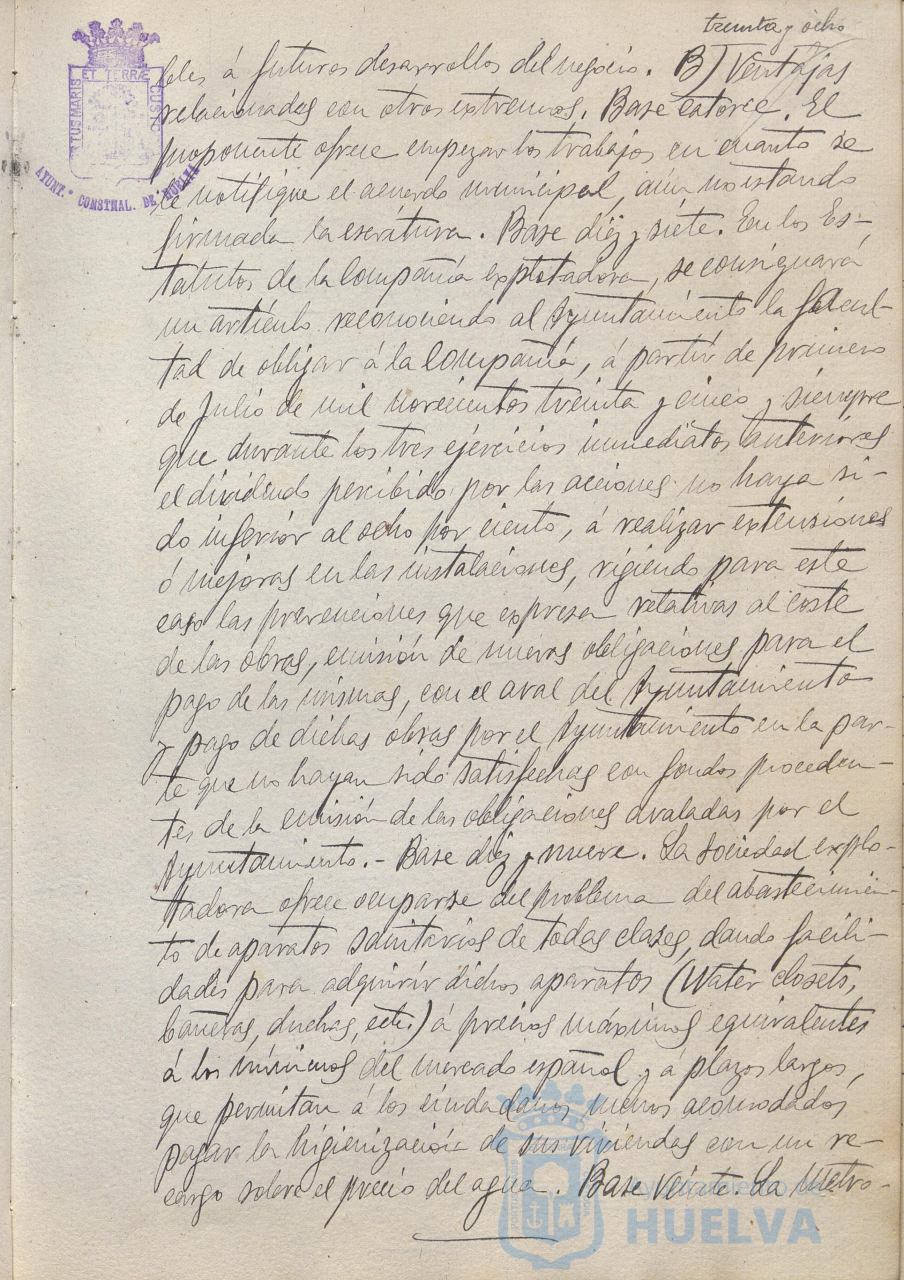 treinta y ocho
ET TERRÆ
CUSTO
PORTUS MARIS
AYUNT.º CONSTNAL. DE HUELVA
bles á futuros desarrollos del negocio. B) Ventajas
relacionadas con otros extremos. Base catorce. El
proponente ofrece empezar los trabajos en cuanto se
le notifique el acuerdo municipal, aún no estando
firmada la escritura. Base diez y siete. En los Es-
tatutos de la Compañía explotadora, se consignará
un artículo reconociendo al Ayuntamiento la facul-
tad de obligar á la Compañía, á partir de primero
de Julio de mil novecientos treinta y cinco y siempre
que durante los tres ejercicios inmediatos anteriores
el dividendo percibido por las acciones no haya si-
do inferior al ocho por ciento, á realizar extensiones
ó mejoras en las instalaciones, rigiendo para este
caso las prevenciones que expresa relativas al coste
de las obras, emisión de nuevas obligaciones para el
pago de las mismas, con el aval del Ayuntamiento
y pago de dichas obras por el Ayuntamiento en la par-
te que no hayan sido satisfechas con fondos proceden-
tes de la emisión de las obligaciones avaladas por el
Ayuntamiento.- Base diez y nueve. La Sociedad explo-
tadora ofrece ocuparse del problema del abastecimien-
to de aparatos sanitarios de todas clases, dando facili-
dades para adquirir dichos aparatos (Water closets,
bañeras, duchas, etc.) á precios máximos equivalentes
á los mínimos del mercado español y á plazos largos,
que permitan á los ciudadanos menos acomodados
pagar la higienización de sus viviendas con un re-
cargo sobre el precio del agua. Base veinte. La Metro-
HUELVA